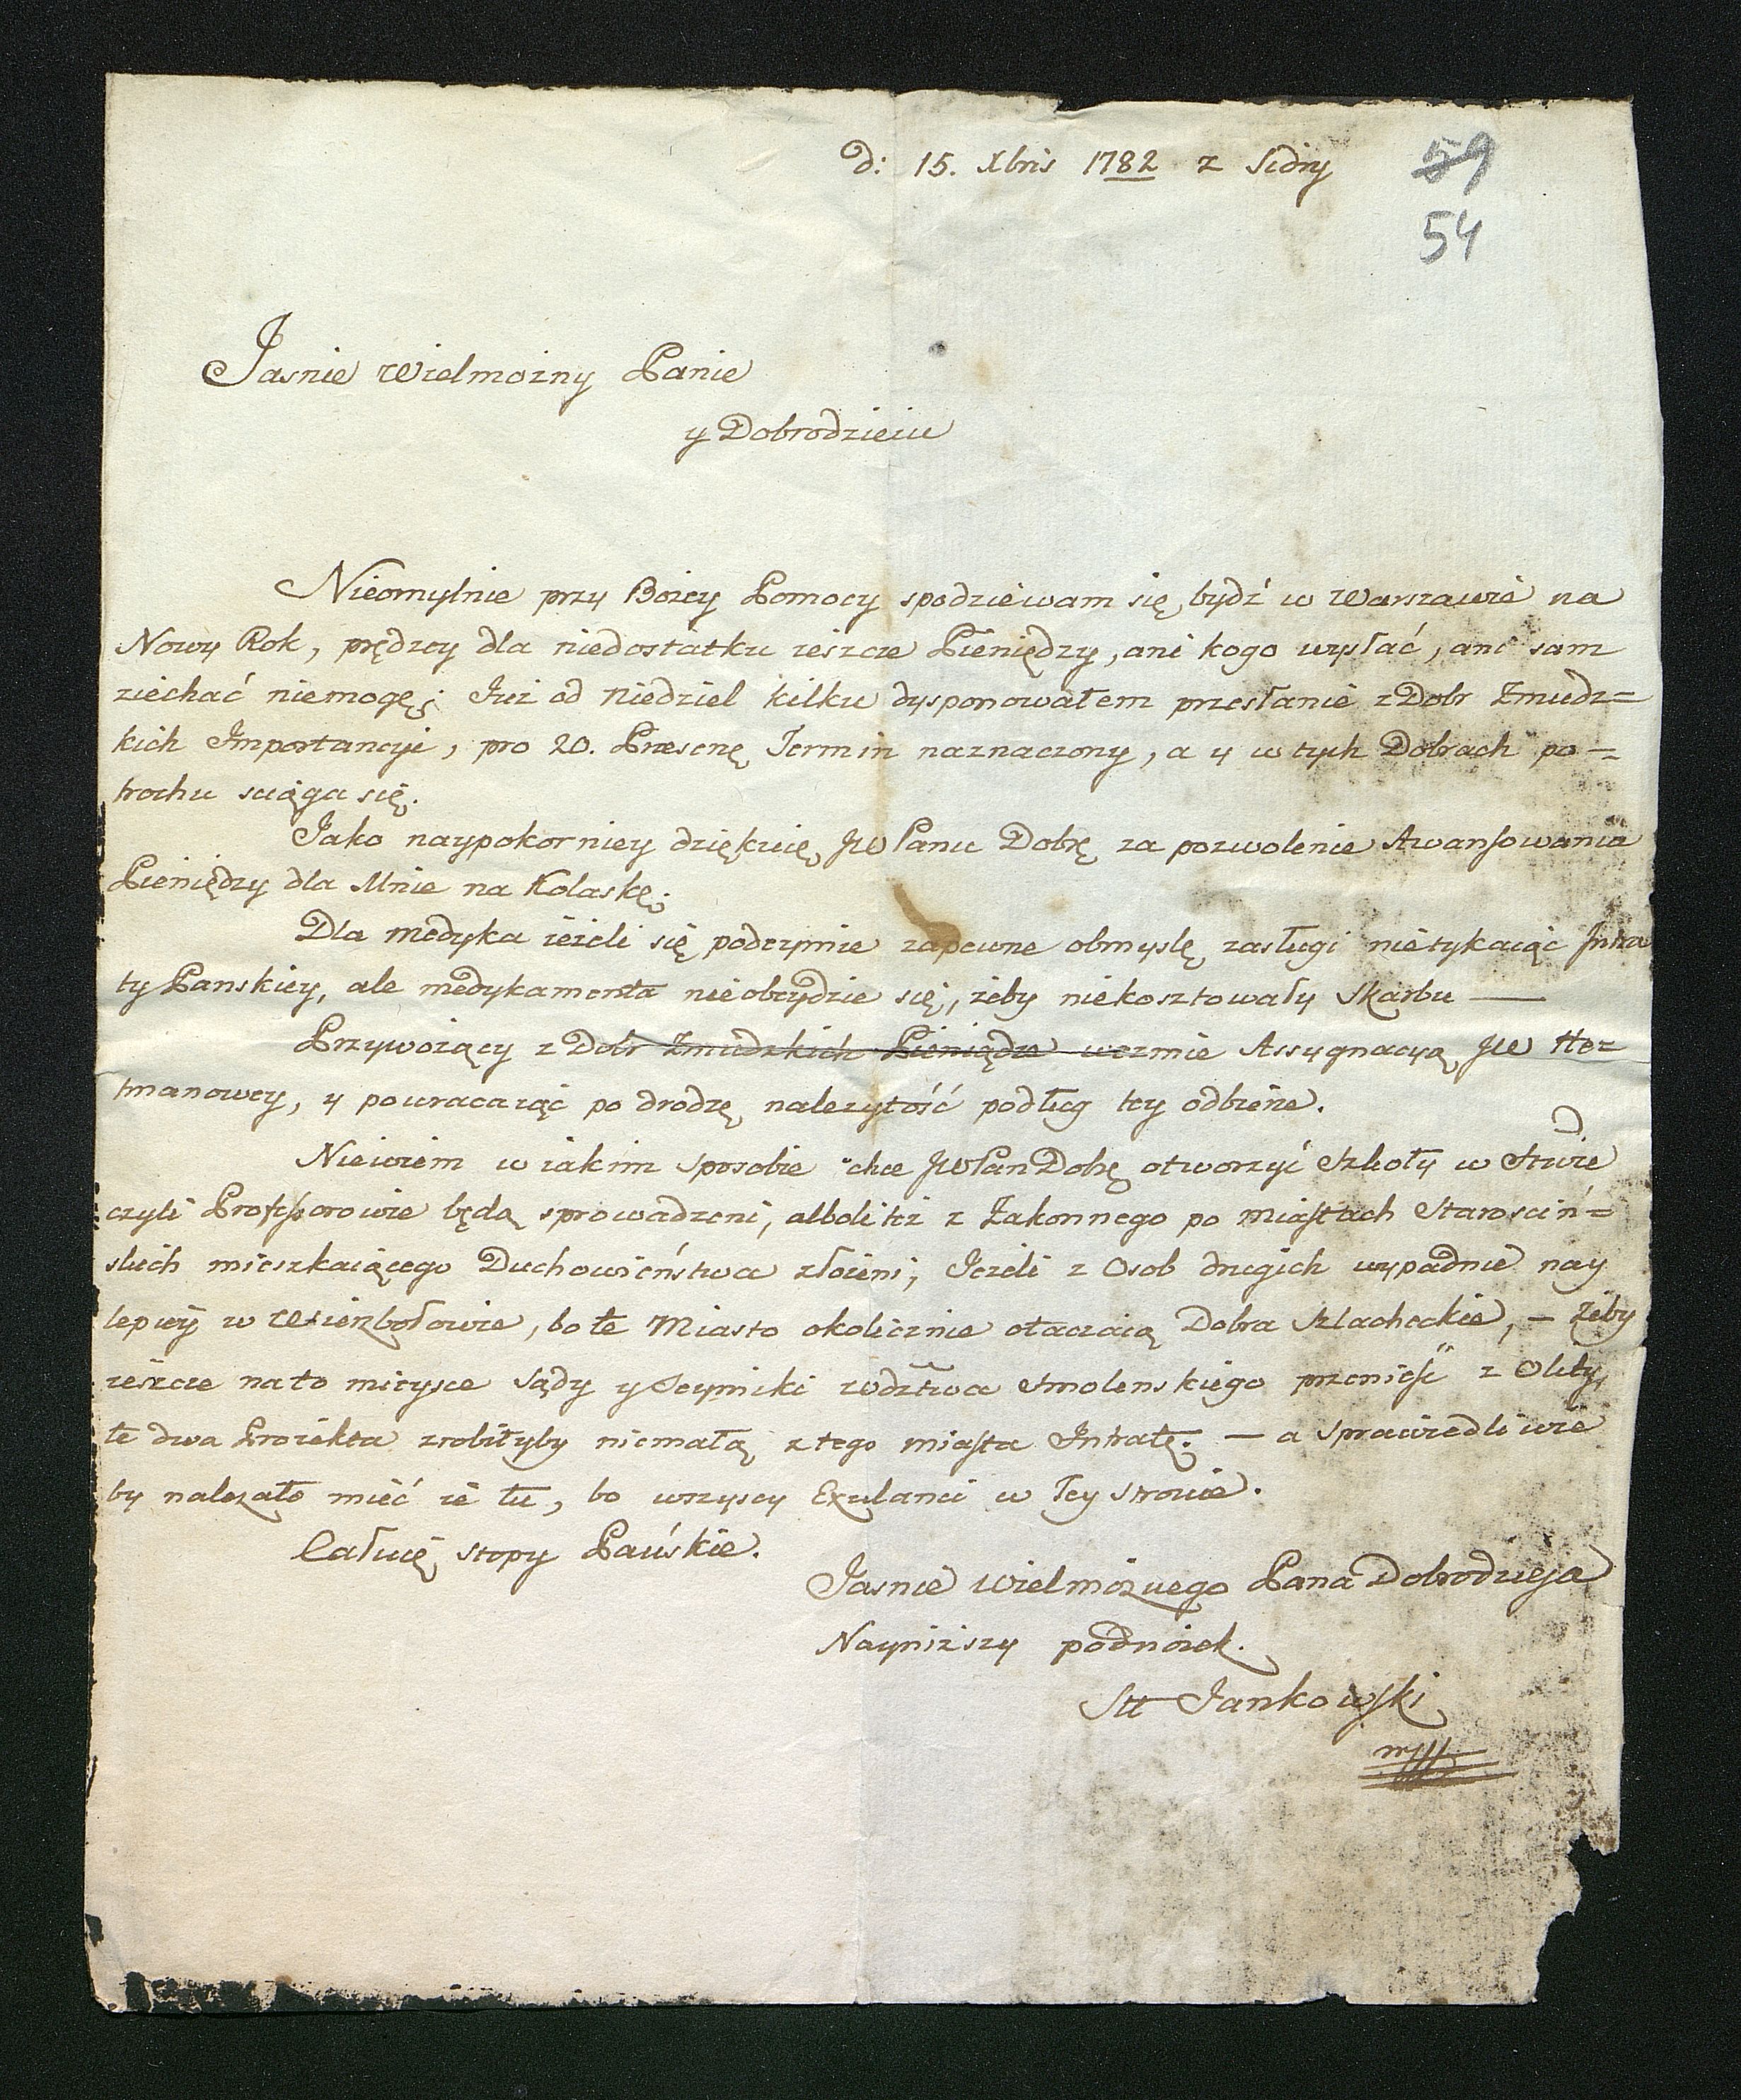 d: 15. Xbris 1782 z Sidry
59
54
Jasnie Wielmożny Panie
y Dobrodzieiu
Nieomylnie przy Bożey Pomocy spodziewam się bydź w Warszawie na
Nowy Rok, prędzey dla niedostatku ieszcze Pieniędzy, ani kogo wysłać, ani sam
ziechać niemogę; Już od Niedziel kilku dysponowałem przesłanie z Dobr Zmudz=
kich Importancyi, pro 20. Presenę Termin naznaczony, a y w tych Dobrach po=
trochu sciąga się.
Jako naypokorniey dziękuię JW Panu Dobrę za pozwolenie Awansowania
Pieniędzy dla Mnie na Kolaskę;
Dla medyka ieżeli się podeymie zapewne obmyslę zasługi nietykaiąc Intra
ty Panskiey, ale medykamenta nieobeydzie się, żeby niekosztowały Skarbu —
Przywożący z Dobr Zmudzkich Pieniądze wezmie Assygnacyą JW Het=
manowey, y powracaiąc po drodze należytość podług tey odbierze.
Niewiem w iakim sposobie chce JW Pan Dobrę otworzyć Szkoły w Sttwie
czyli Professorowie będą sprowadzeni, alboli też z Zakonnego po miastach Starosciń=
skich mieszkaiącego Duchowieństwa złożeni; Jeżeli z Osob drugich wypadnie nay
lepiey w Wierzbołowie, bo te Miasto okolicznie otaczaią Dobra Szlacheckie, — żeby
ieszcze na to mieysce Sądy y Seymiki wdztwa Smolenskiego przenieść z Olity,
te dwa Proiekta zrobiłyby niemałą z tego miasta Intratę. — a sprawiedliwie
by należało mieć ie tu, bo wszyscy Exulanci w tey stronie.
Całuię stopy Pańskie.
Jasnie Wielmożnego Pana Dobrodzieja
Nayniższy podnożek.
Stt Jankowski
mpp